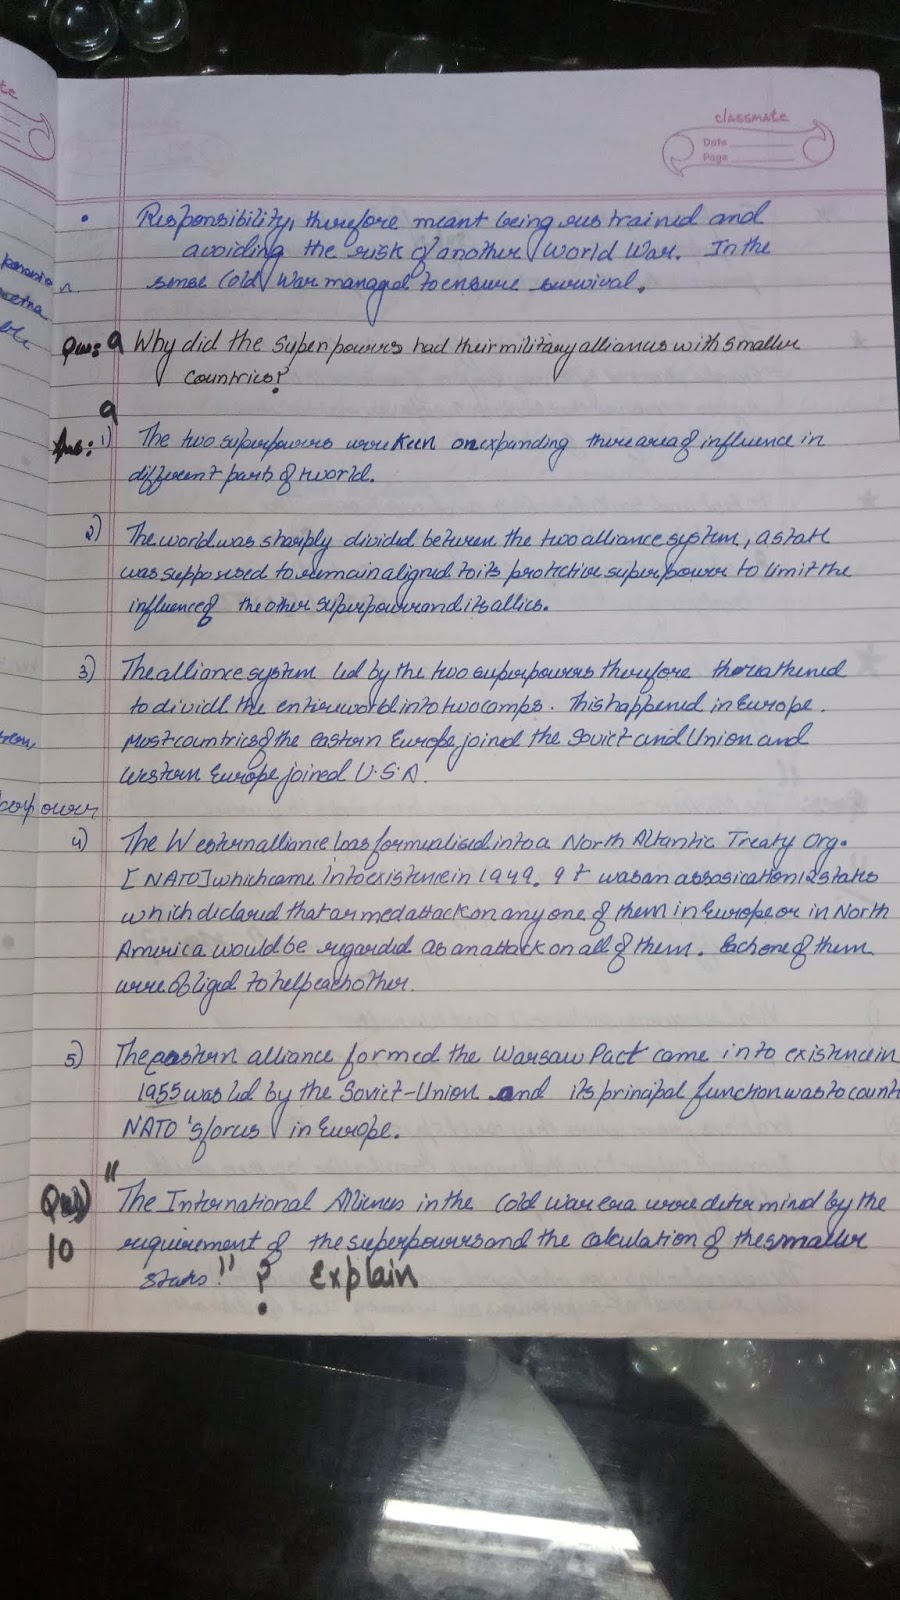 classmate
Date
Page
• Responsibility, therefore meant being restrained and
avoiding the risk of another World War. In the
sense Cold War managed to ensure survival.
Ques 9 Why did the Superpowers had their military alliances with smaller
countries?
9
Ans: 1) The two superpowers were keen on expanding there area of influence in
different parts of world.
2) The world was sharply divided between the two alliance system, a state
was supposed to remain aligned to its protective superpower to limit the
influence of the other superpower and its allies.
3) The alliance system led by the two superpowers therefore threathened
to divide the entire world into two camps. This happened in Europe.
Most countries of the eastern Europe joined the Soviet and Union and
Western Europe joined U.S.A.
4) The Western alliance was formualised into a North Altantic Treaty Org.
[NATO] which came into existence in 1949. It was an assosication 12 states
which declared that armed attack on any one of them in Europe or in North
America would be regarded as an attack on all of them. Each one of them
were obliged to help each other.
5) The eastern alliance formed the Warsaw Pact came into existence in
1955 was led by the Soviet-Union and its principal function was to count
NATO's forces in Europe.
Ques) "The International Alliances in the Cold War era were determined by the
10 requirement of the superpowers and the calculation of the smaller
states." ? Explain